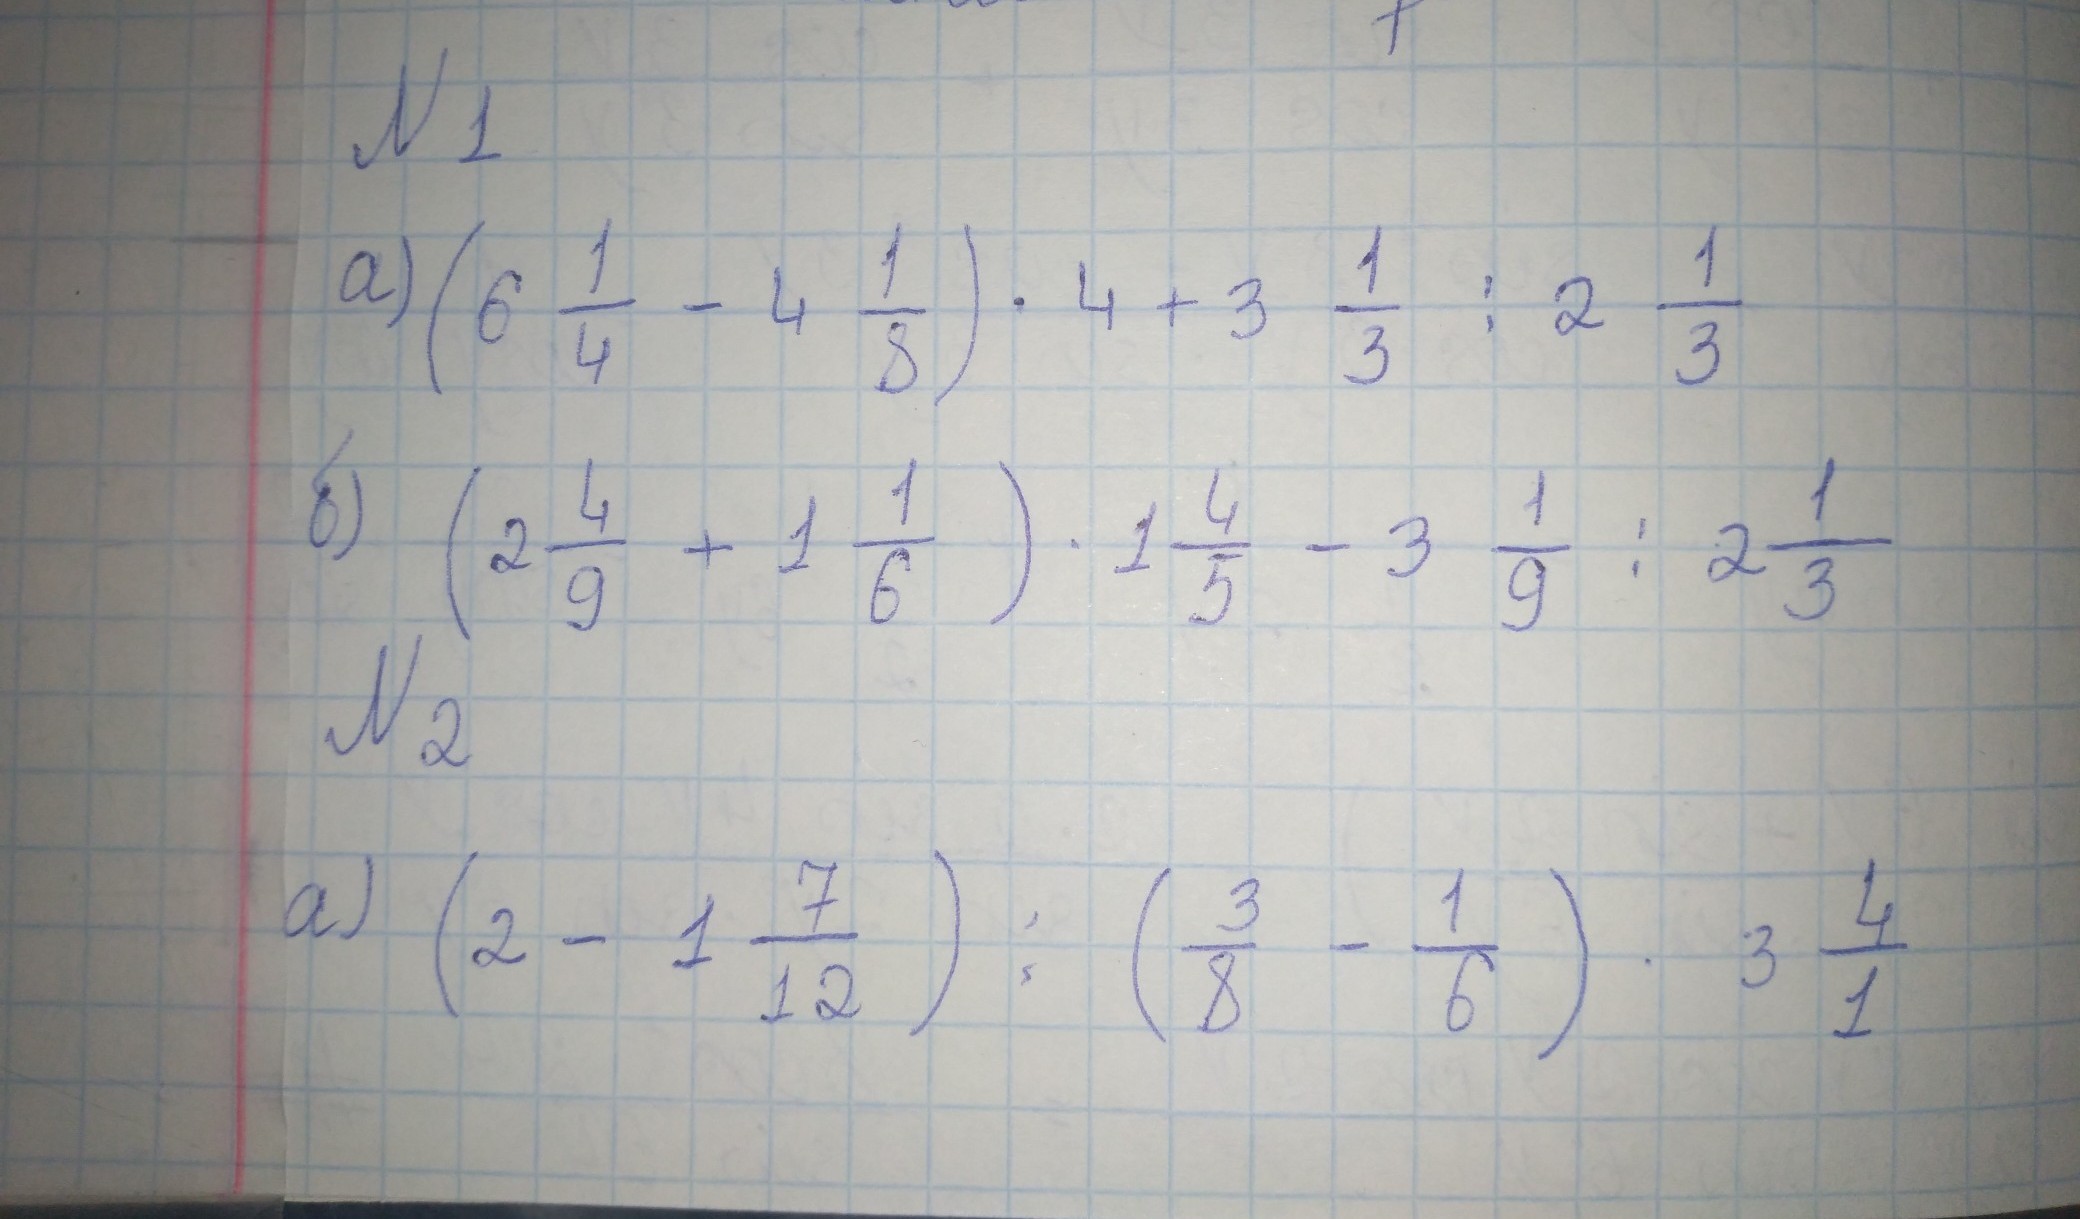 N1
а) (6 1/4 - 4 1/8) · 4 + 3 1/3 : 2 1/3
б) (2 4/9 + 1 1/6) · 1 4/5 - 3 1/9 : 2 1/3
N2
а) (2 - 1 7/12) : (3/8 - 1/6) · 3 4/1